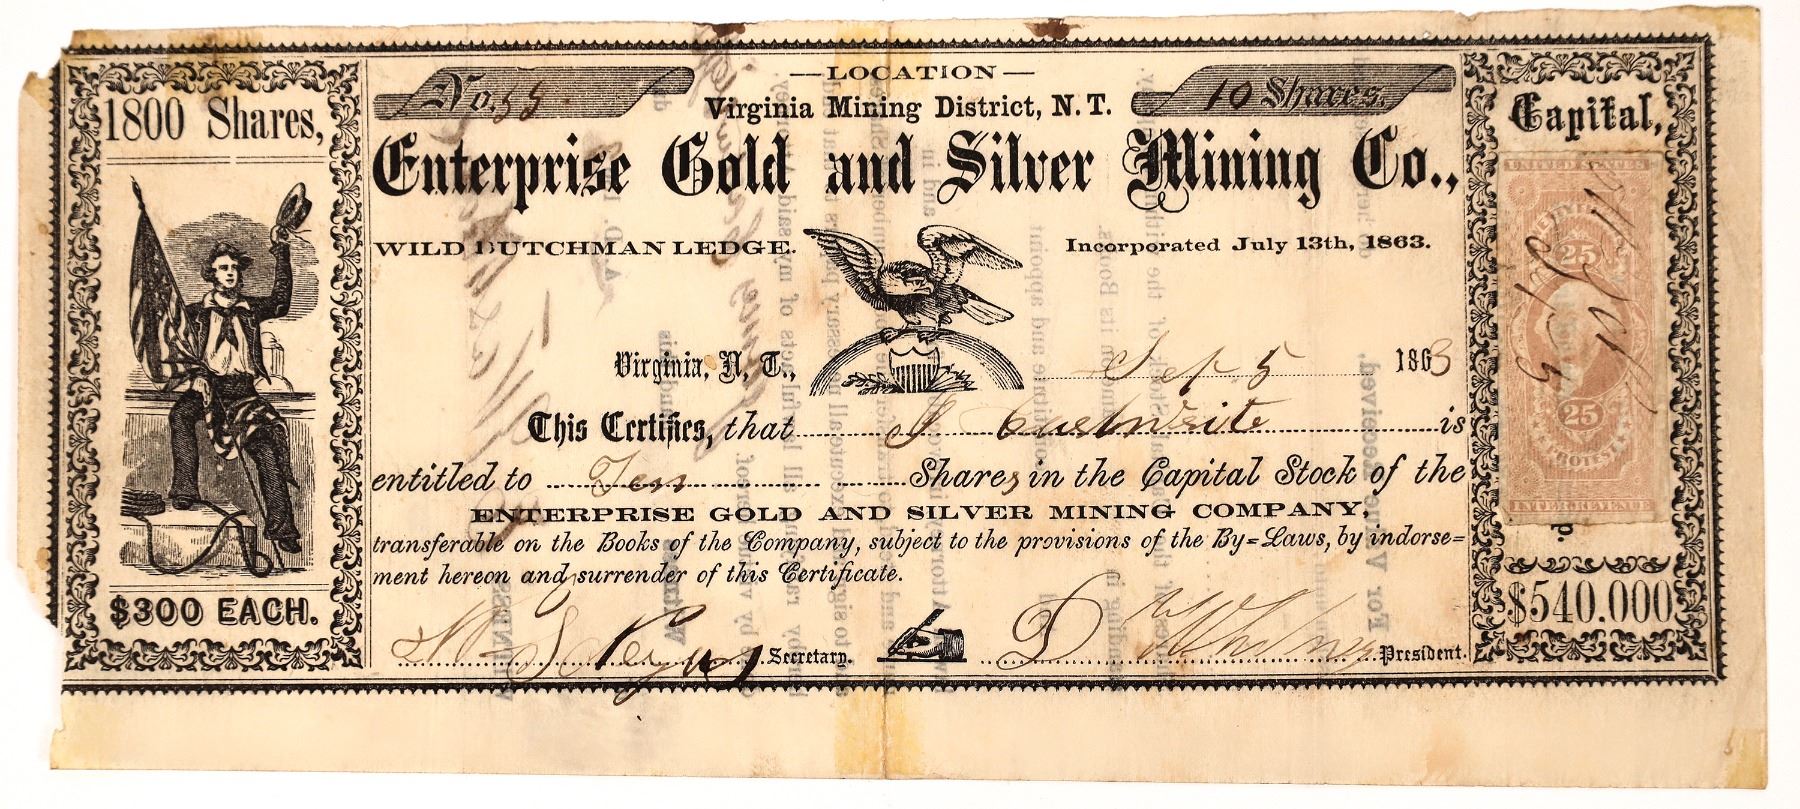 1800 Shares,
$300 EACH.
No. 55
—LOCATION—
Virginia Mining District, N. T.
10 Shares.
Enterprise Gold and Silver Mining Co.,
WILD DUTCHMAN LEDGE.
Incorporated July 13th, 1863.
Virginia, N, T., Sep 5 1863
This Certifies, that J is
entitled to Ten Shares in the Capital Stock of the
ENTERPRISE GOLD AND SILVER MINING COMPANY,
transferable on the Books of the Company, subject to the provisions of the By=Laws, by indorse=
ment hereon and surrender of this Certificate.
Secretary.
D Whitney President.
Capital,
UNITED STATES
25
25
PROTEST
INTER. REVENUE
$540.000